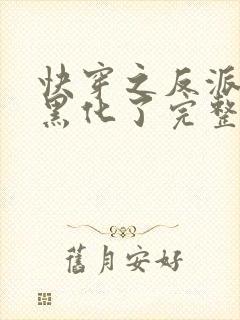 快穿之反派
黑化了完整
舊月安好